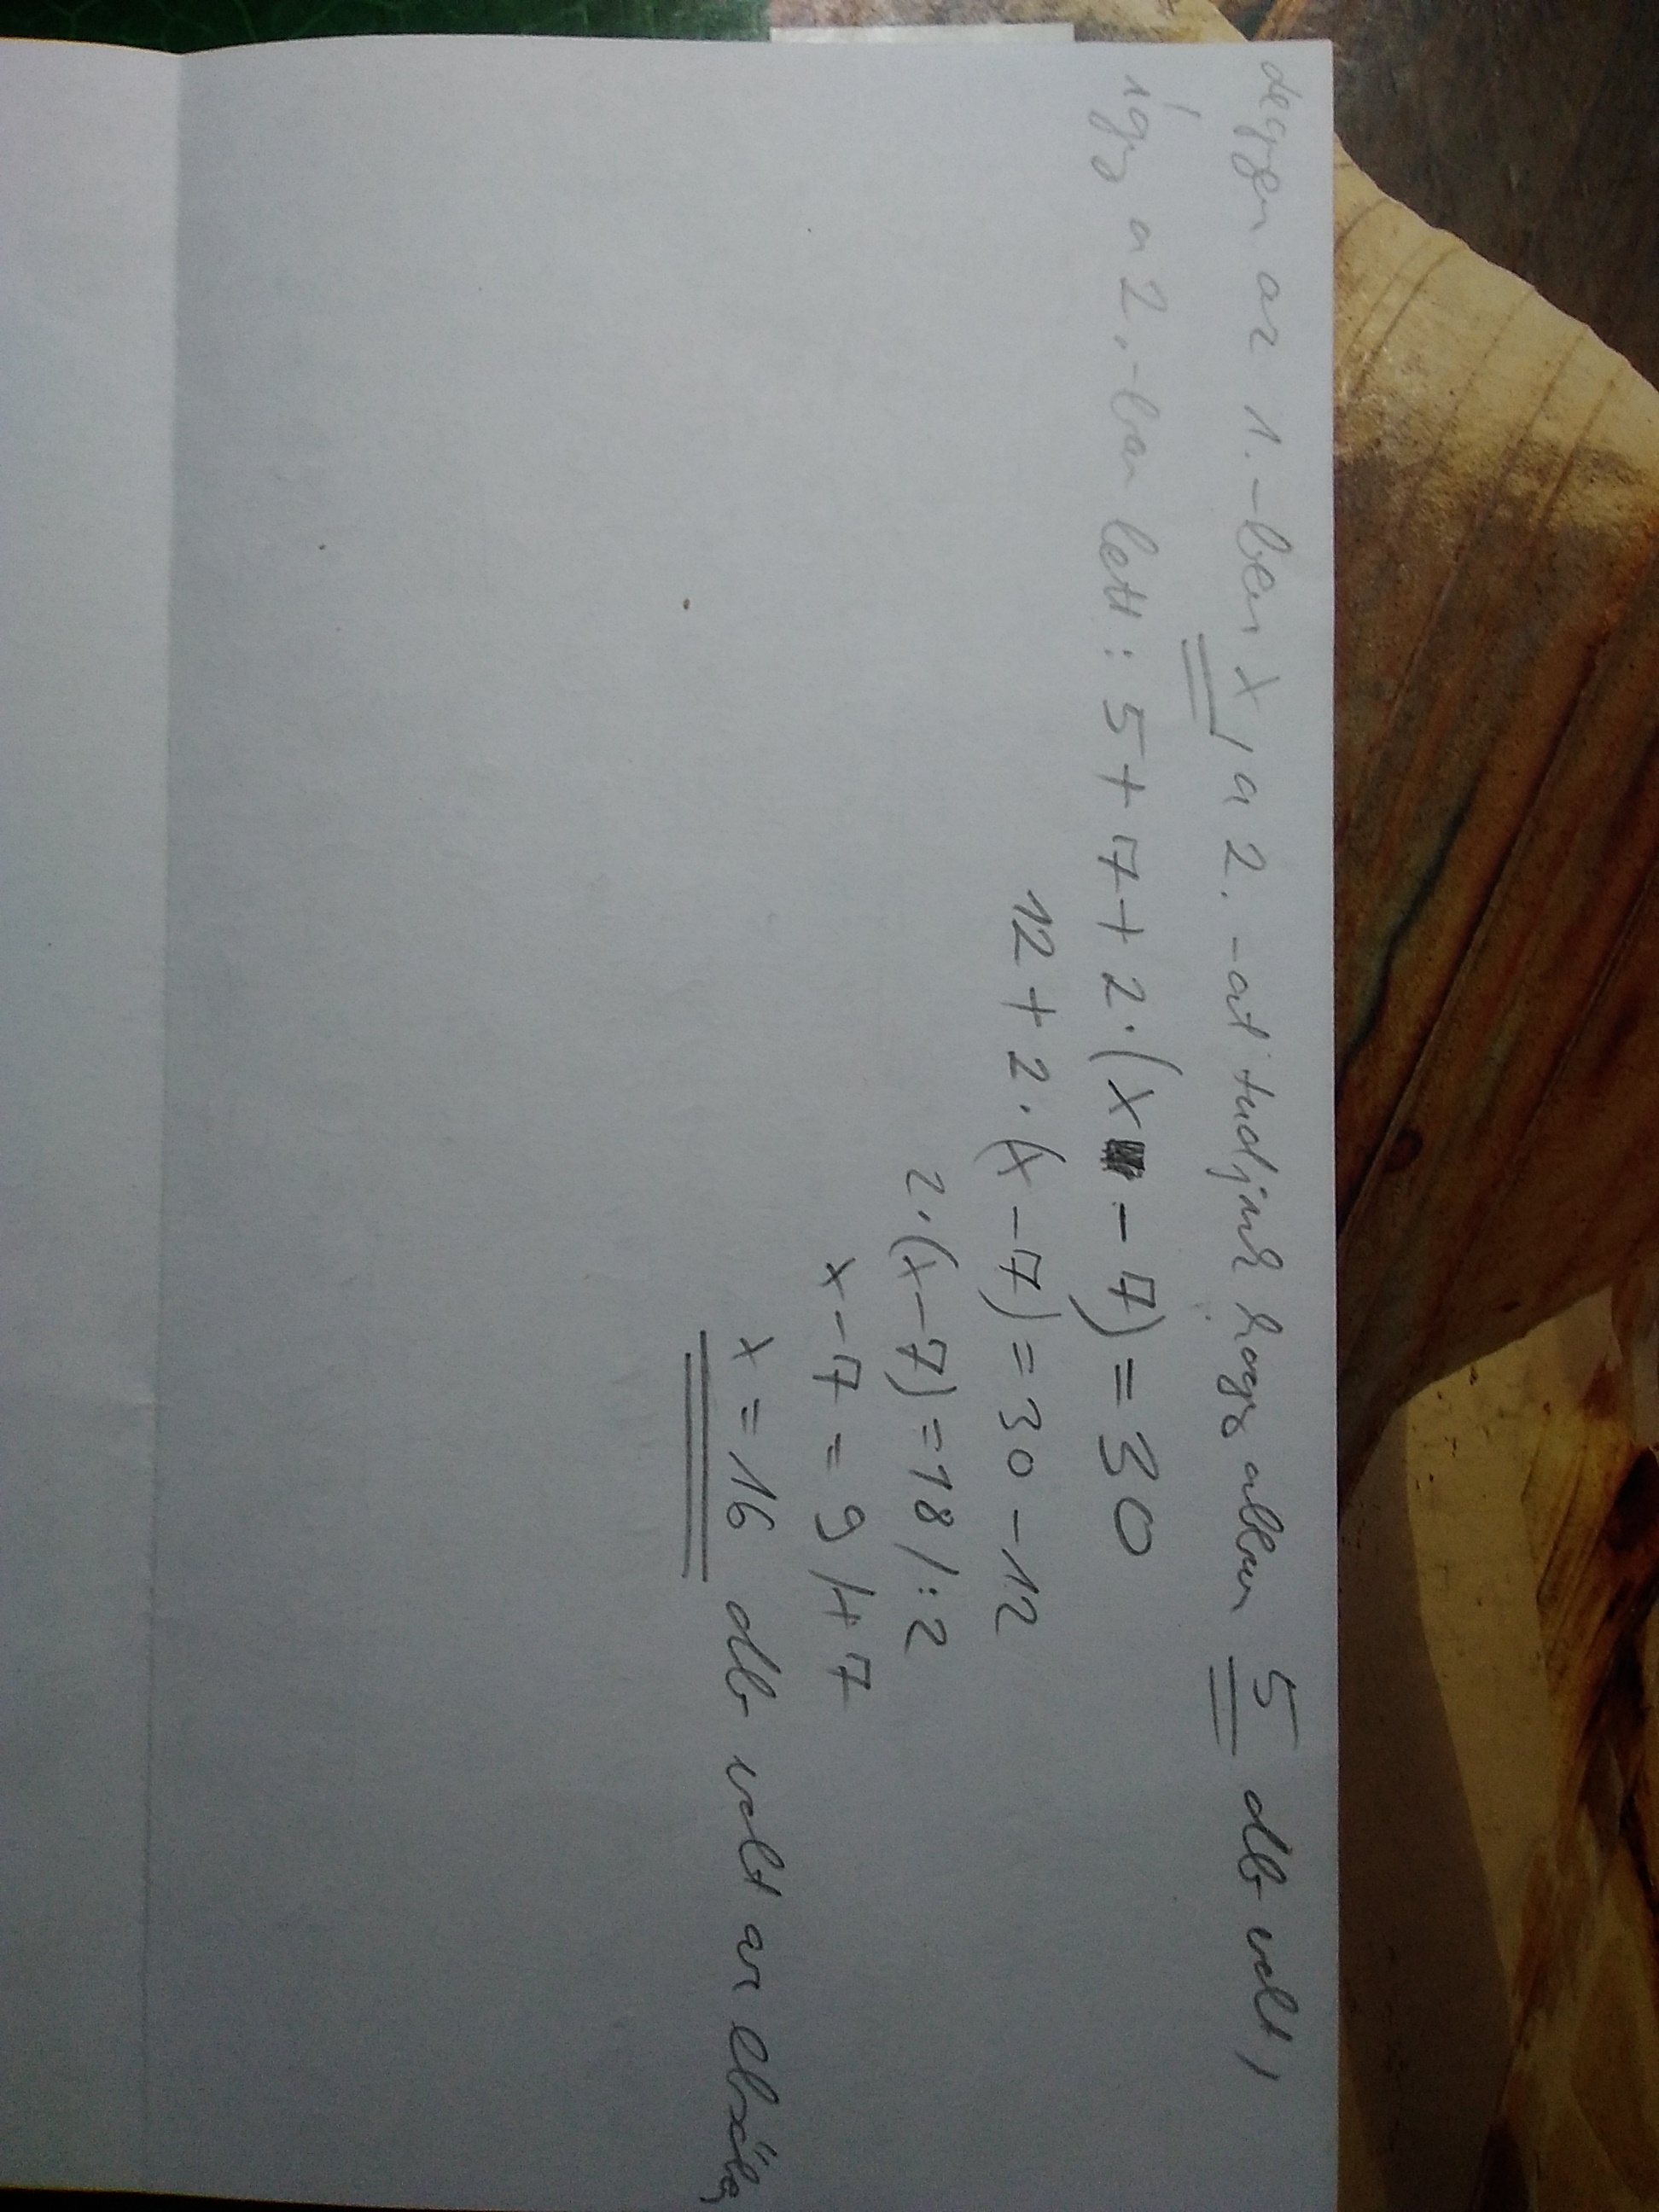 legyen az 1.-ben x, a 2.-at tudjuk hogy abban 5 db volt,
így a 2.-ban lett: 5+7+2·(x-7)=30
12+2·(x-7)=30-12
2·(x-7)=18/:2
x-7=9/+7
x=16 db volt az elsőbe,